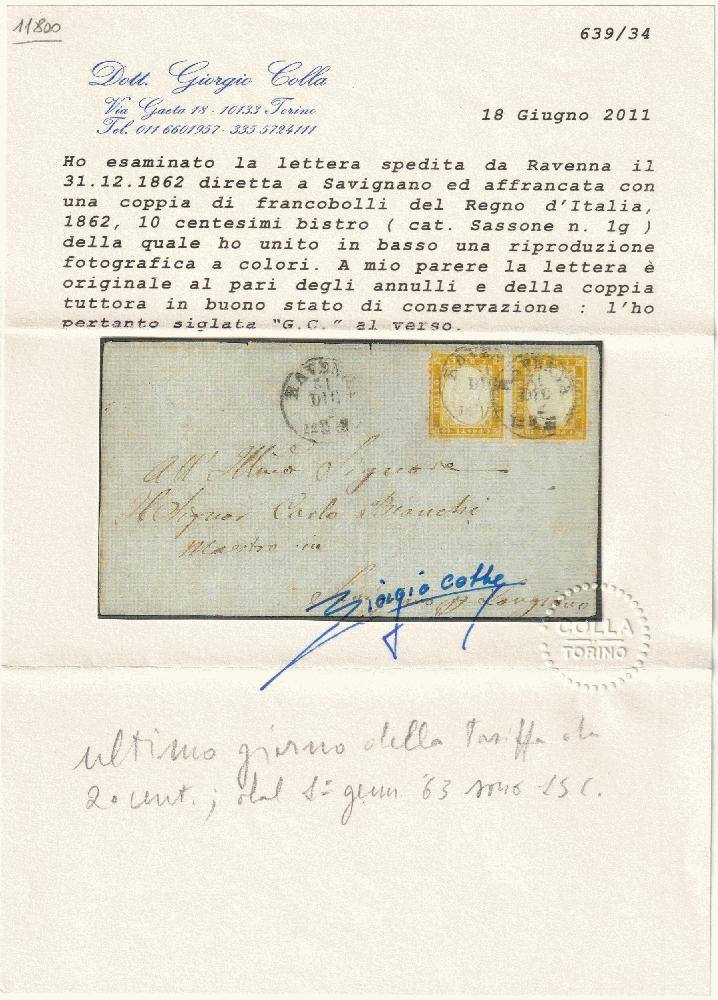 11800
639/34
Dott. Giorgio Colla
Via Gaeta 18 - 10133 Torino
Tel. 011 6601957 - 335 5724111
18 Giugno 2011
Ho esaminato la lettera spedita da Ravenna il
31.12.1862 diretta a Savignano ed affrancata con
una coppia di francobolli del Regno d'Italia,
1862, 10 centesimi bistro ( cat. Sassone n. 1g )
della quale ho unito in basso una riproduzione
fotografica a colori. A mio parere la lettera è
originale al pari degli annulli e della coppia
tuttora in buono stato di conservazione : l'ho
pertanto siglata "G.C." al verso.
RAVENNA
31
DIC
RAVENNA
DIC
RAVENNA
31
DIC
All' Signore
Il Signor Carlo Bianchi
Maestro in
Giorgio Colla
COLLA
TORINO
ultimo giorno della tariffa da
20 cent.; dal 1° genn. '63 sono 15 c.